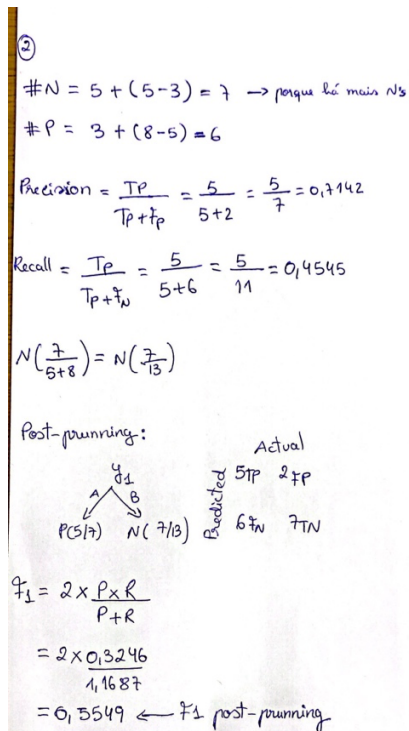 2
#N = 5 + (5-3) = 7 → porque há mais N's
#P = 3 + (8-5) = 6
Precision = TP / TP+FP = 5 / 5+2 = 5/7 = 0,7142
Recall = TP / TP+FN = 5 / 5+6 = 5/11 = 0,4545
N(7/5+8) = N(7/13)
Post-prunning:
y1
A B
P(5/7) N(7/13)
Actual
Predicted
5TP 2FP
6FN 7TN
F1 = 2 × P×R / P+R
= 2 × 0,3246 / 1,1687
= 0,5549 ← F1 post-prunning